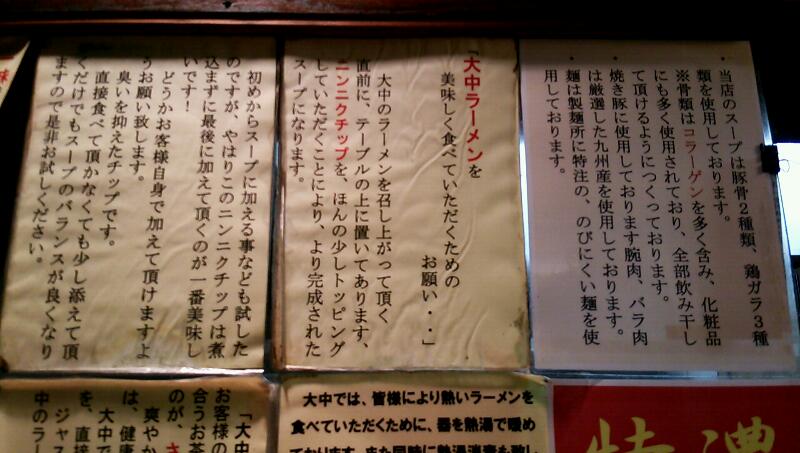 ・当店のスープは豚骨2種類、鶏ガラ3種
類を使用しております。
※骨類はコラーゲンを多く含み、化粧品
にも多く使用されており、全部飲み干し
て頂けるようにつくっております。
・焼き豚に使用しております腕肉、バラ肉
は厳選した九州産を使用しております。
・麺は製麺所に特注の、のびにくい麺を使
用しております。
「大中ラーメンを
美味しく食べていただくための
お願い・・」
大中のラーメンを召し上がって頂く
直前に、テーブルの上に置いてあります、
ニンニクチップを、ほんの少しトッピング
していただくことにより、より完成された
スープになります。
初めからスープに加える事なども試した
のですが、やはりこのニンニクチップは煮
込まずに最後に加えて頂くのが一番美味し
いです！
どうかお客様自身で加えて頂けますよ
うお願い致します。
臭いを抑えたチップです。
直接食べて頂かなくても少し添えて頂
くだけでもスープのバランスが良くなり
ますので是非お試しください。
特濃
大中では、皆様により熱いラーメンを
食べていただくために、器を熱湯で暖め
ております。また同時に熱湯消毒を致し
「大中
お客様の
合うお茶
のが、さ
爽やか
は、健康
大中で
を、直接
ジャス
中のラー